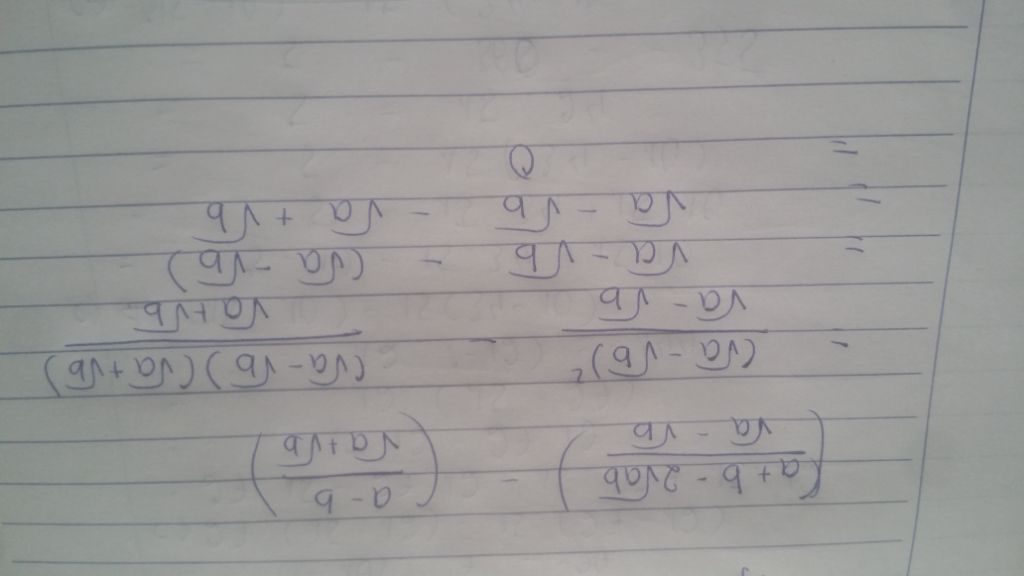 (a + b - 2√ab / √a - √b) - (a - b / √a + √b)
= (√a - √b)² / √a - √b - (√a - √b)(√a + √b) / √a + √b
= √a - √b - (√a - √b)
= √a - √b - √a + √b
= 0